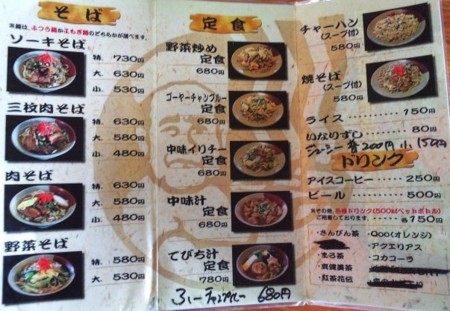 そば
※麺は、ふつう麺かよもぎ麺のどちらかが選べます。
ソーキそば
特. 730円
大. 630円
小. 530円
三枚肉そば
特. 630円
大. 580円
小. 480円
肉そば
特. 630円
大. 580円
小. 480円
野菜そば
特. 580円
大. 530円
定食
野菜炒め
定食
680円
ゴーヤーチャンプルー
定食
680円
中味イリチー
定食
680円
中味汁
定食
680円
てびち汁
定食
780円
フーチャンプルー 680円
チャーハン
(スープ付)
580円
焼そば
(スープ付)
580円
ライス 150円
いなりずし 80円
ジューシー 普200円 小150円
ドリンク
アイスコーヒー 250円
ビール 500円
※その他、各種ドリンク(500mlペットボトル)
ご用意しております。 各150円
・さんぴん茶
・Qoo(オレンジ)
・アクエリアス
・まろ茶
・コカコーラ
・爽健美茶
・紅茶花伝